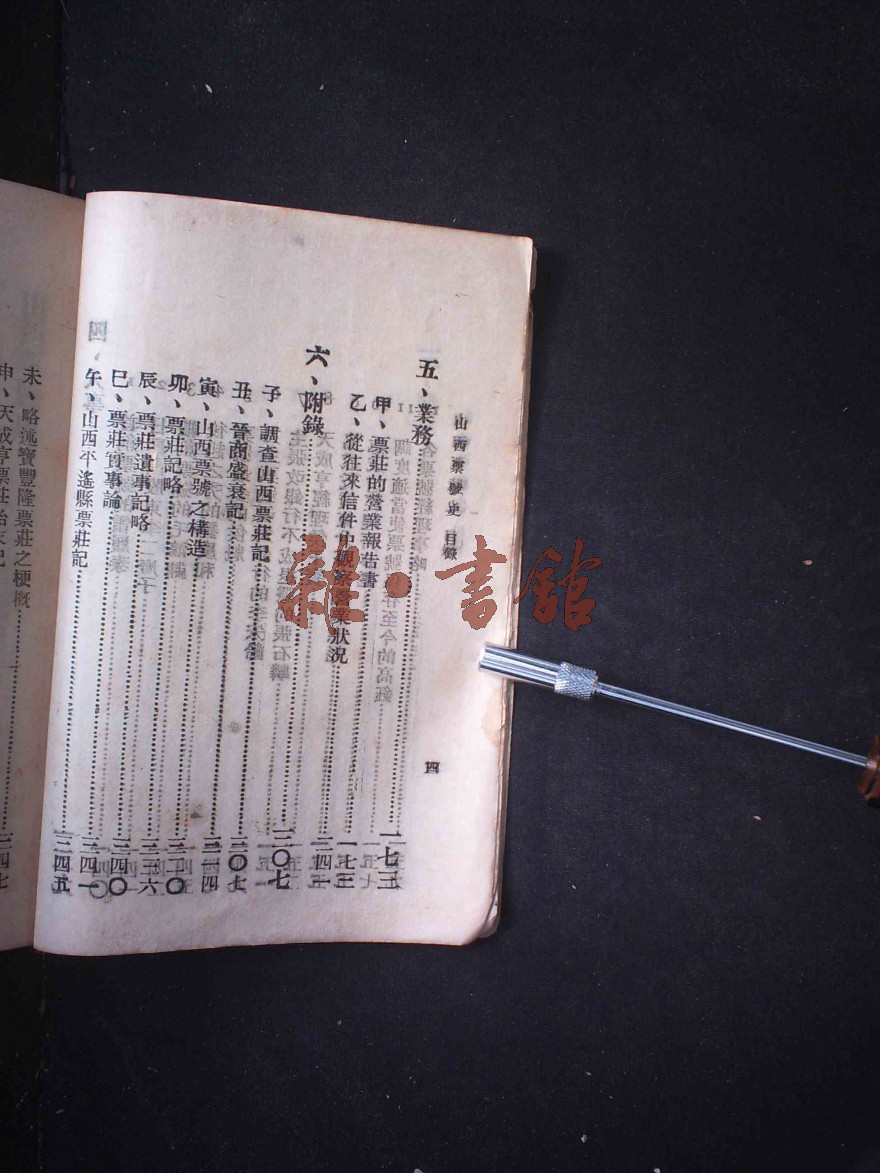 山西票號史 目錄 四
五、業務……一七三
甲、票莊的營業報告書……一七三
乙、從往來信件中觀察營業狀況……二四三
六、附錄……三〇七
子、調查山西票莊記……三〇七
丑、晉商盛衰記……三一四
寅、山西票號之構造……三二〇
卯、票莊記略……三三六
辰、票莊遺事記略……三四〇
巳、票莊實事論……三四一
午、山西平遙縣票莊記……三四五
未、略述寶豐隆票莊之梗概……三四七
申、天成亨票莊始末記
雜·書館